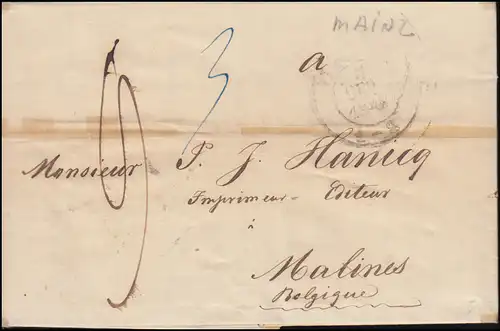 MAINZ
3
a
Monsieur P. J. Hanicq
Imprimeur - Editeur
à
Malines
Belgique